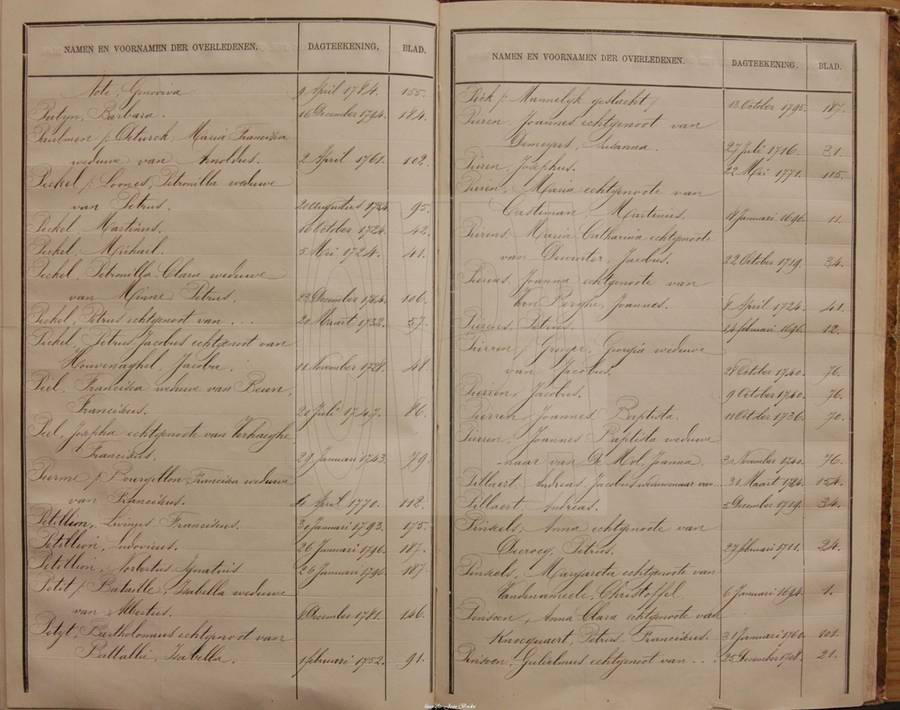 NAMEN EN VOORNAMEN DER OVERLEDENEN. DAGTEEKENING. BLAD.
Note, Genoviva 9 April 1784. 155.
Barbara. 16 December 1794. 184.
Paulmen / Maria Francisca
weduwe van Arnoldus. 2 April 1761. 102.
Peckel / Loones, Petronilla weduwe
van Petrus. 95.
Peckel Martinus. 16 October 1724. 42.
Peckel, Michael. 5 Mei 1724. 41.
Peckel Petronilla Clara weduwe
van Minne Petrus. 23 December 1764. 106.
Peckel, Petrus echtgenoot van ... 20 Maart 1732. 57.
Peckel, Petrus Jacobus echtgenoot van
Houvenaghel, Jacoba. 11 November 1728. 48.
Peel, Francisca weduwe van
Franciscus. 20 Juli 1747. 86.
Peel, Josepha echtgenoote van Verhaeghe
Franciscus. 29 Januari 1743. 79.
Francisca weduwe
van Franciscus. April 1770. 112.
Petillion, Livinus Franciscus. 30 Januari 1793. 175.
Petillion, Ludovicus. 26 Januari 1796. 187.
Petillion, Norbertus Ignatius 26 Januari 1796 187
Petit / Bataille, Isabella weduwe
van Albertus. December 1781. 146.
Petyt, Bartholomeus echtgenoot van
Battallie, Isabella. 1 februari 1752. 91.
NAMEN EN VOORNAMEN DER OVERLEDENEN. DAGTEEKENING. BLAD.
Mannelyk geslacht) 13 October 1795. 187.
Pieren, Joannes echtgenoot van
Susanna. 27 Juli 1716. 31.
Pieren, Josephus. 22 Mei 1771. 115.
Pieren, Maria echtgenoote van
Casteman, Martinus. Januari 1696. 11.
Pierens Maria Catharina echtgenoote
van Jacobus. 22 October 1719. 34.
Joanna echtgenoote van
Van Berghe, Joannes. April 1724. 41.
Petrus. 14 februari 1696. 12.
Pierren / Georgia weduwe
van Jacobus. 28 October 1740. 76.
Pierren, Jacobus. 9 October 1740. 76.
Pierren Joannes Baptista. 11 October 1736. 70.
Pierren, Joannes Baptista weduwe
naar van De Mol, Joanna. November 1740. 76.
Pillaert, Andreas, Jacobus weduwenaar van 31 Maart 1784. 154.
Pillaert, Andreas. 5 December 1719. 34.
Pinkels, Anna echtgenoote van
Petrus. 27 februari 1711. 24.
Pinkels, Margareta echtgenoote van
Christoffel. 6 Januari 1694. 1.
Pinsoen, Anna Clara echtgenoote van
Knocquaert, Petrus Franciscus. 31 Januari 1760. 101.
Pinsoen, Gulielmus echtgenoot van ... 25 December 1708. 21.